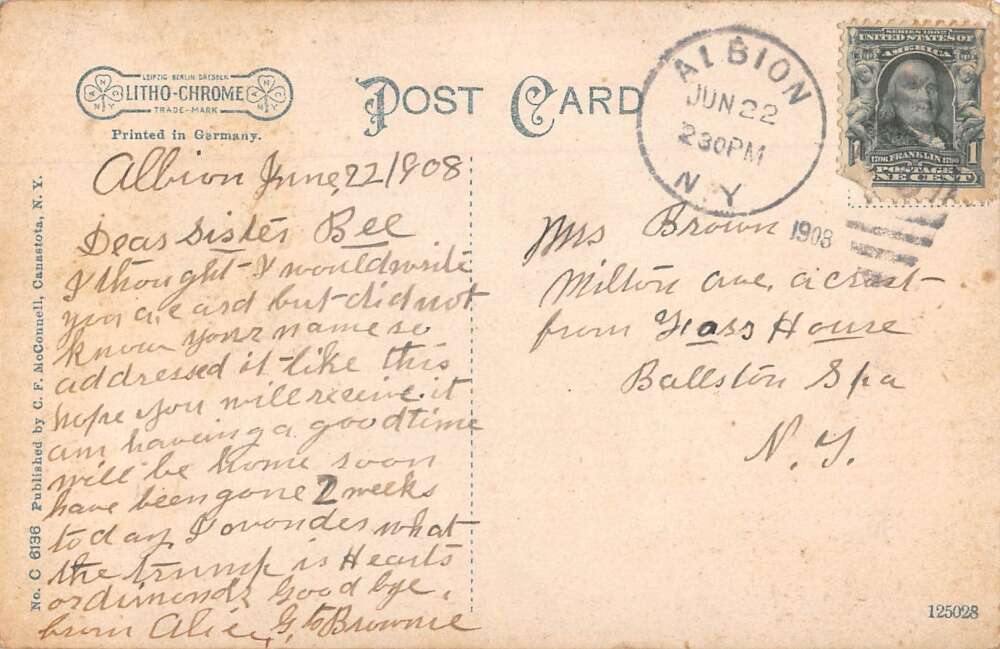 LEIPZIG BERLIN DRESDEN
LITHO-CHROME
TRADE-MARK
Printed in Germany.
POST CARD
ALBION
JUN 22
230PM
N.Y.
1908
SERIES 1902
UNITED STATES OF
AMERICA
1706 FRANKLIN 1790
POSTAGE
ONE CENT
1
No. C 6136 Published by C. F. McConnell, Canastota, N. Y.
Albion June, 22/1908
Dear Sister Bee
I thought I would write
you a card but did not
know your name so
addressed it like this
hope you will receive it
am haveing a good time
will be home soon
have been gone 2 weeks
today I wonder what
the trump is Hearts
or dimonds Good bye.
from Alice G. to Brownie
Mrs Brown
Milton ave, acrost
from House
Ballston Spa
N. Y.
125028